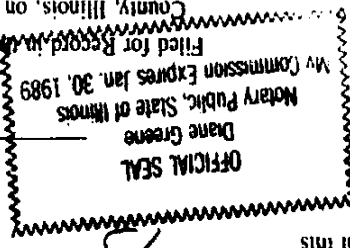 l this
OFFICIAL SEAL
Diane Greene
Notary Public, State of Illinois
My Commission Expires Jan. 30, 1989
Filed for Record in
County, Illinois, on